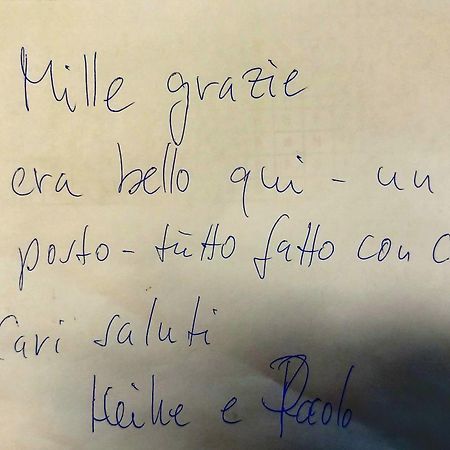 Mille grazie
era bello qui - un
posto - tùtto fatto con c
Cari saluti
Heike e Paolo